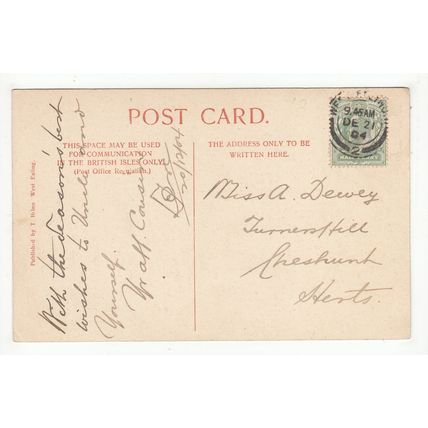 POST CARD.
THIS SPACE MAY BE USED
FOR COMMUNICATION
IN THE BRITISH ISLES ONLY.
(Post Office Regulation.)
THE ADDRESS ONLY TO BE
WRITTEN HERE.
With the season's best
wishes to Uncle and
Yourself.
Yr aff. Cousin
20/12/04
Miss A. Dewey
Turners Hill
Cheshunt
Herts.
9.45AM
DE 21
04
2
Published by T. West Ealing.